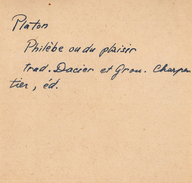 Platon
Philèbe ou du plaisir
trad. Dacier et Grou. Charpen
tier, éd.